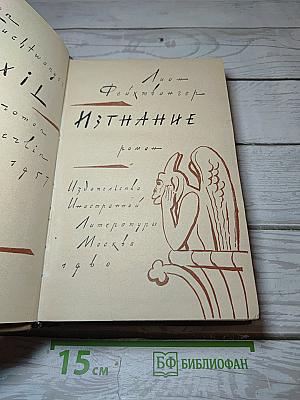 on
uchtwanger
xil
roman
erlin
1957
Лион
Фейхтвангер
ИЗГНАНИЕ
роман
Издательство
Иностранной
Литературы
Москва
1960
15 см
БФ БИБЛИОФАН